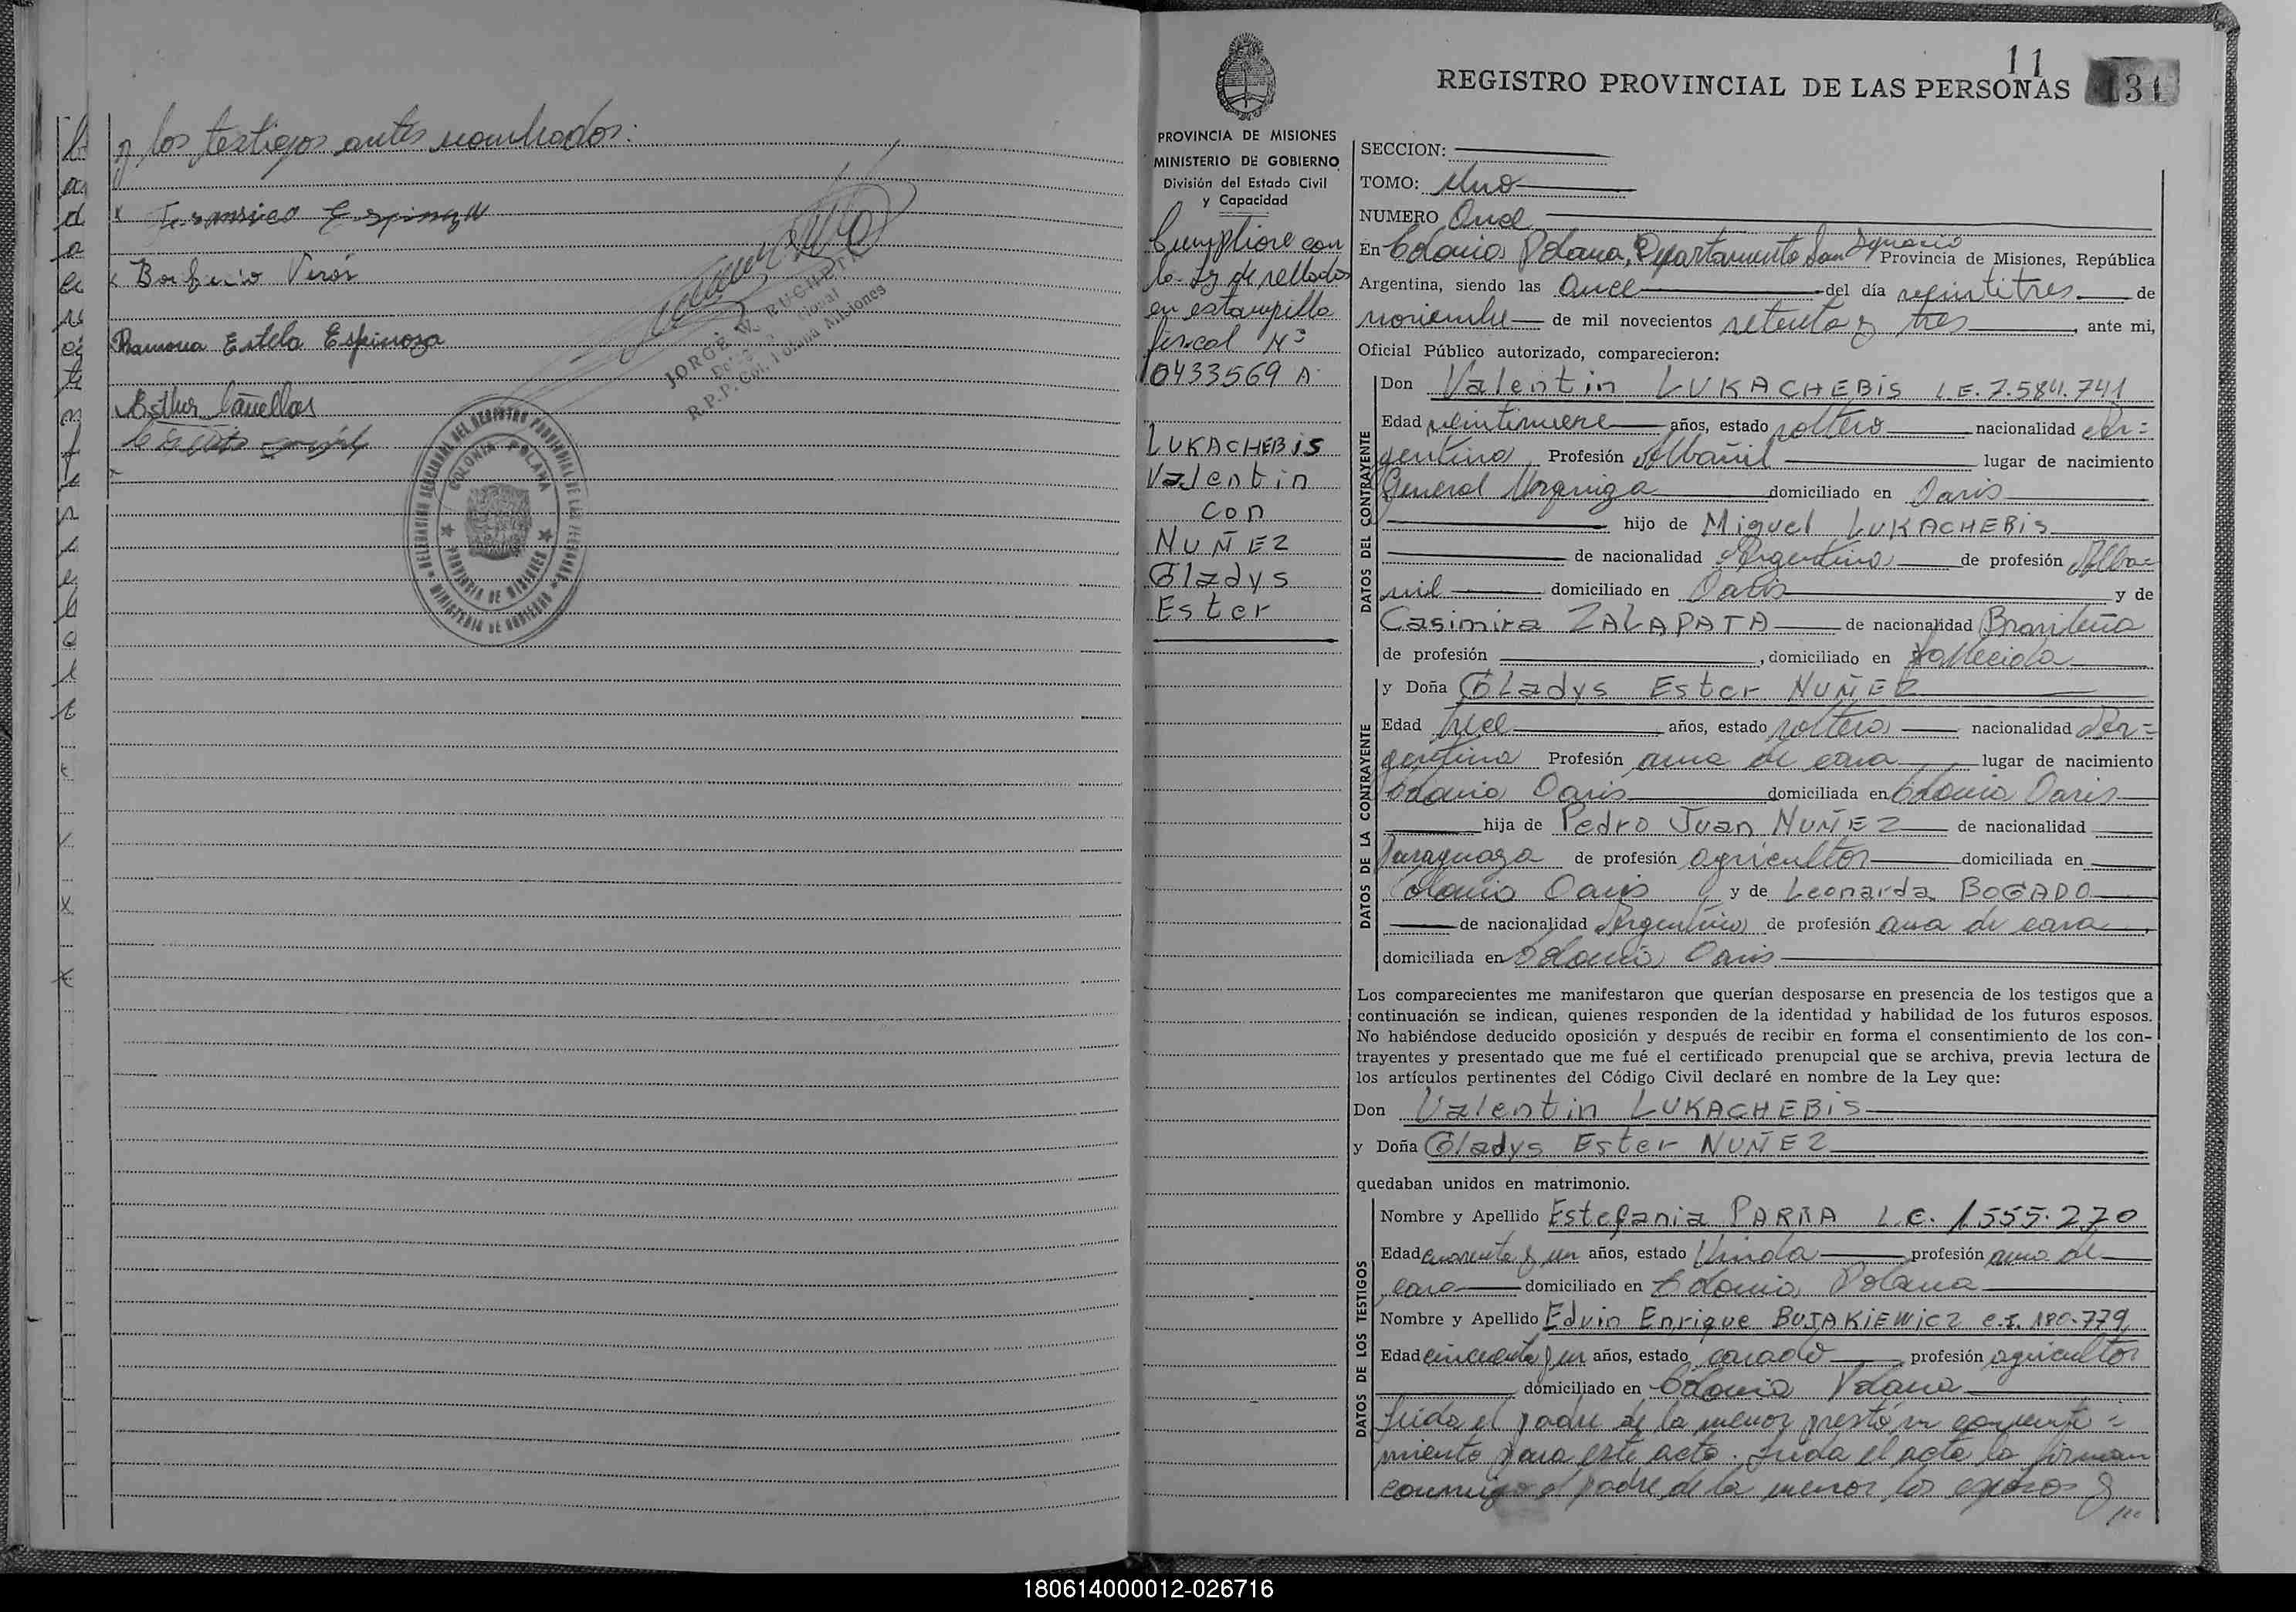 y los testigos antes nombrados:
x Fransico Espinoza
x Porfirio Veron
Ramona Estela Espinoza
Esther Cañellas
JORGE W. BUCHOLTZ
R.P.P. Col. Polana Misiones
DELEGACION SECCIONAL DEL REGISTRO PROVINCIAL DE LAS PERSONAS
COLONIA POLANA
PROVINCIA DE MISIONES
MINISTERIO DE GOBIERNO
PROVINCIA DE MISIONES
MINISTERIO DE GOBIERNO
División del Estado Civil
y Capacidad
Cumpliose con
la Ley de sellados
en estampilla
fiscal Nº
10433569 A
LUKACHEBIS
Valentin
con
NUÑEZ
Gladys
Ester
11
REGISTRO PROVINCIAL DE LAS PERSONAS 131
SECCION:
TOMO: Uno
NUMERO Once
En Colonia Polana, Departamento San Ignacio Provincia de Misiones, República
Argentina, siendo las Once del día veintitres de
noviembre de mil novecientos setenta y tres, ante mi,
Oficial Público autorizado, comparecieron:
DATOS DEL CONTRAYENTE
Don Valentin LUKACHEBIS L.E. 7.584.741
Edad veintinueve años, estado soltero nacionalidad Ar=
gentina Profesión Albañil lugar de nacimiento
General Urquiza domiciliado en Oasis
hijo de Miguel LUKACHEBIS
de nacionalidad Argentina de profesión Alba=
ñil domiciliado en Oasis y de
Casimira ZALAPATA de nacionalidad Brasileña
de profesión , domiciliado en fallecida
DATOS DE LA CONTRAYENTE
y Doña Gladys Ester NUÑEZ
Edad trece años, estado soltera nacionalidad Ar=
gentina Profesión ama de casa lugar de nacimiento
Colonia Oasis domiciliada en Colonia Oasis
hija de Pedro Juan NUÑEZ de nacionalidad
Paraguaya de profesión agricultor domiciliada en
Colonia Oasis y de Leonarda BOGADO
de nacionalidad Argentina de profesión ama de casa
domiciliada en Colonia Oasis
Los comparecientes me manifestaron que querían desposarse en presencia de los testigos que a
continuación se indican, quienes responden de la identidad y habilidad de los futuros esposos.
No habiéndose deducido oposición y después de recibir en forma el consentimiento de los con-
trayentes y presentado que me fué el certificado prenupcial que se archiva, previa lectura de
los artículos pertinentes del Código Civil declaré en nombre de la Ley que:
Don Valentin LUKACHEBIS
y Doña Gladys Ester NUÑEZ
quedaban unidos en matrimonio.
DATOS DE LOS TESTIGOS
Nombre y Apellido Estefania PARRA L.C. 1.555.270
Edad cuarenta y un años, estado Viuda profesión ama de
casa domiciliado en Colonia Polana
Nombre y Apellido Edvin Enrique BUJAKIEWICZ C.I. 180.779
Edad cincuenta y un años, estado casado profesión agricultor
domiciliado en Colonia Polana
Leida el padre de la menor prestó su consenti=
miento para este acto. Leida el acta la firman
conmigo el padre de la menor, los esposos y
180614000012-026716